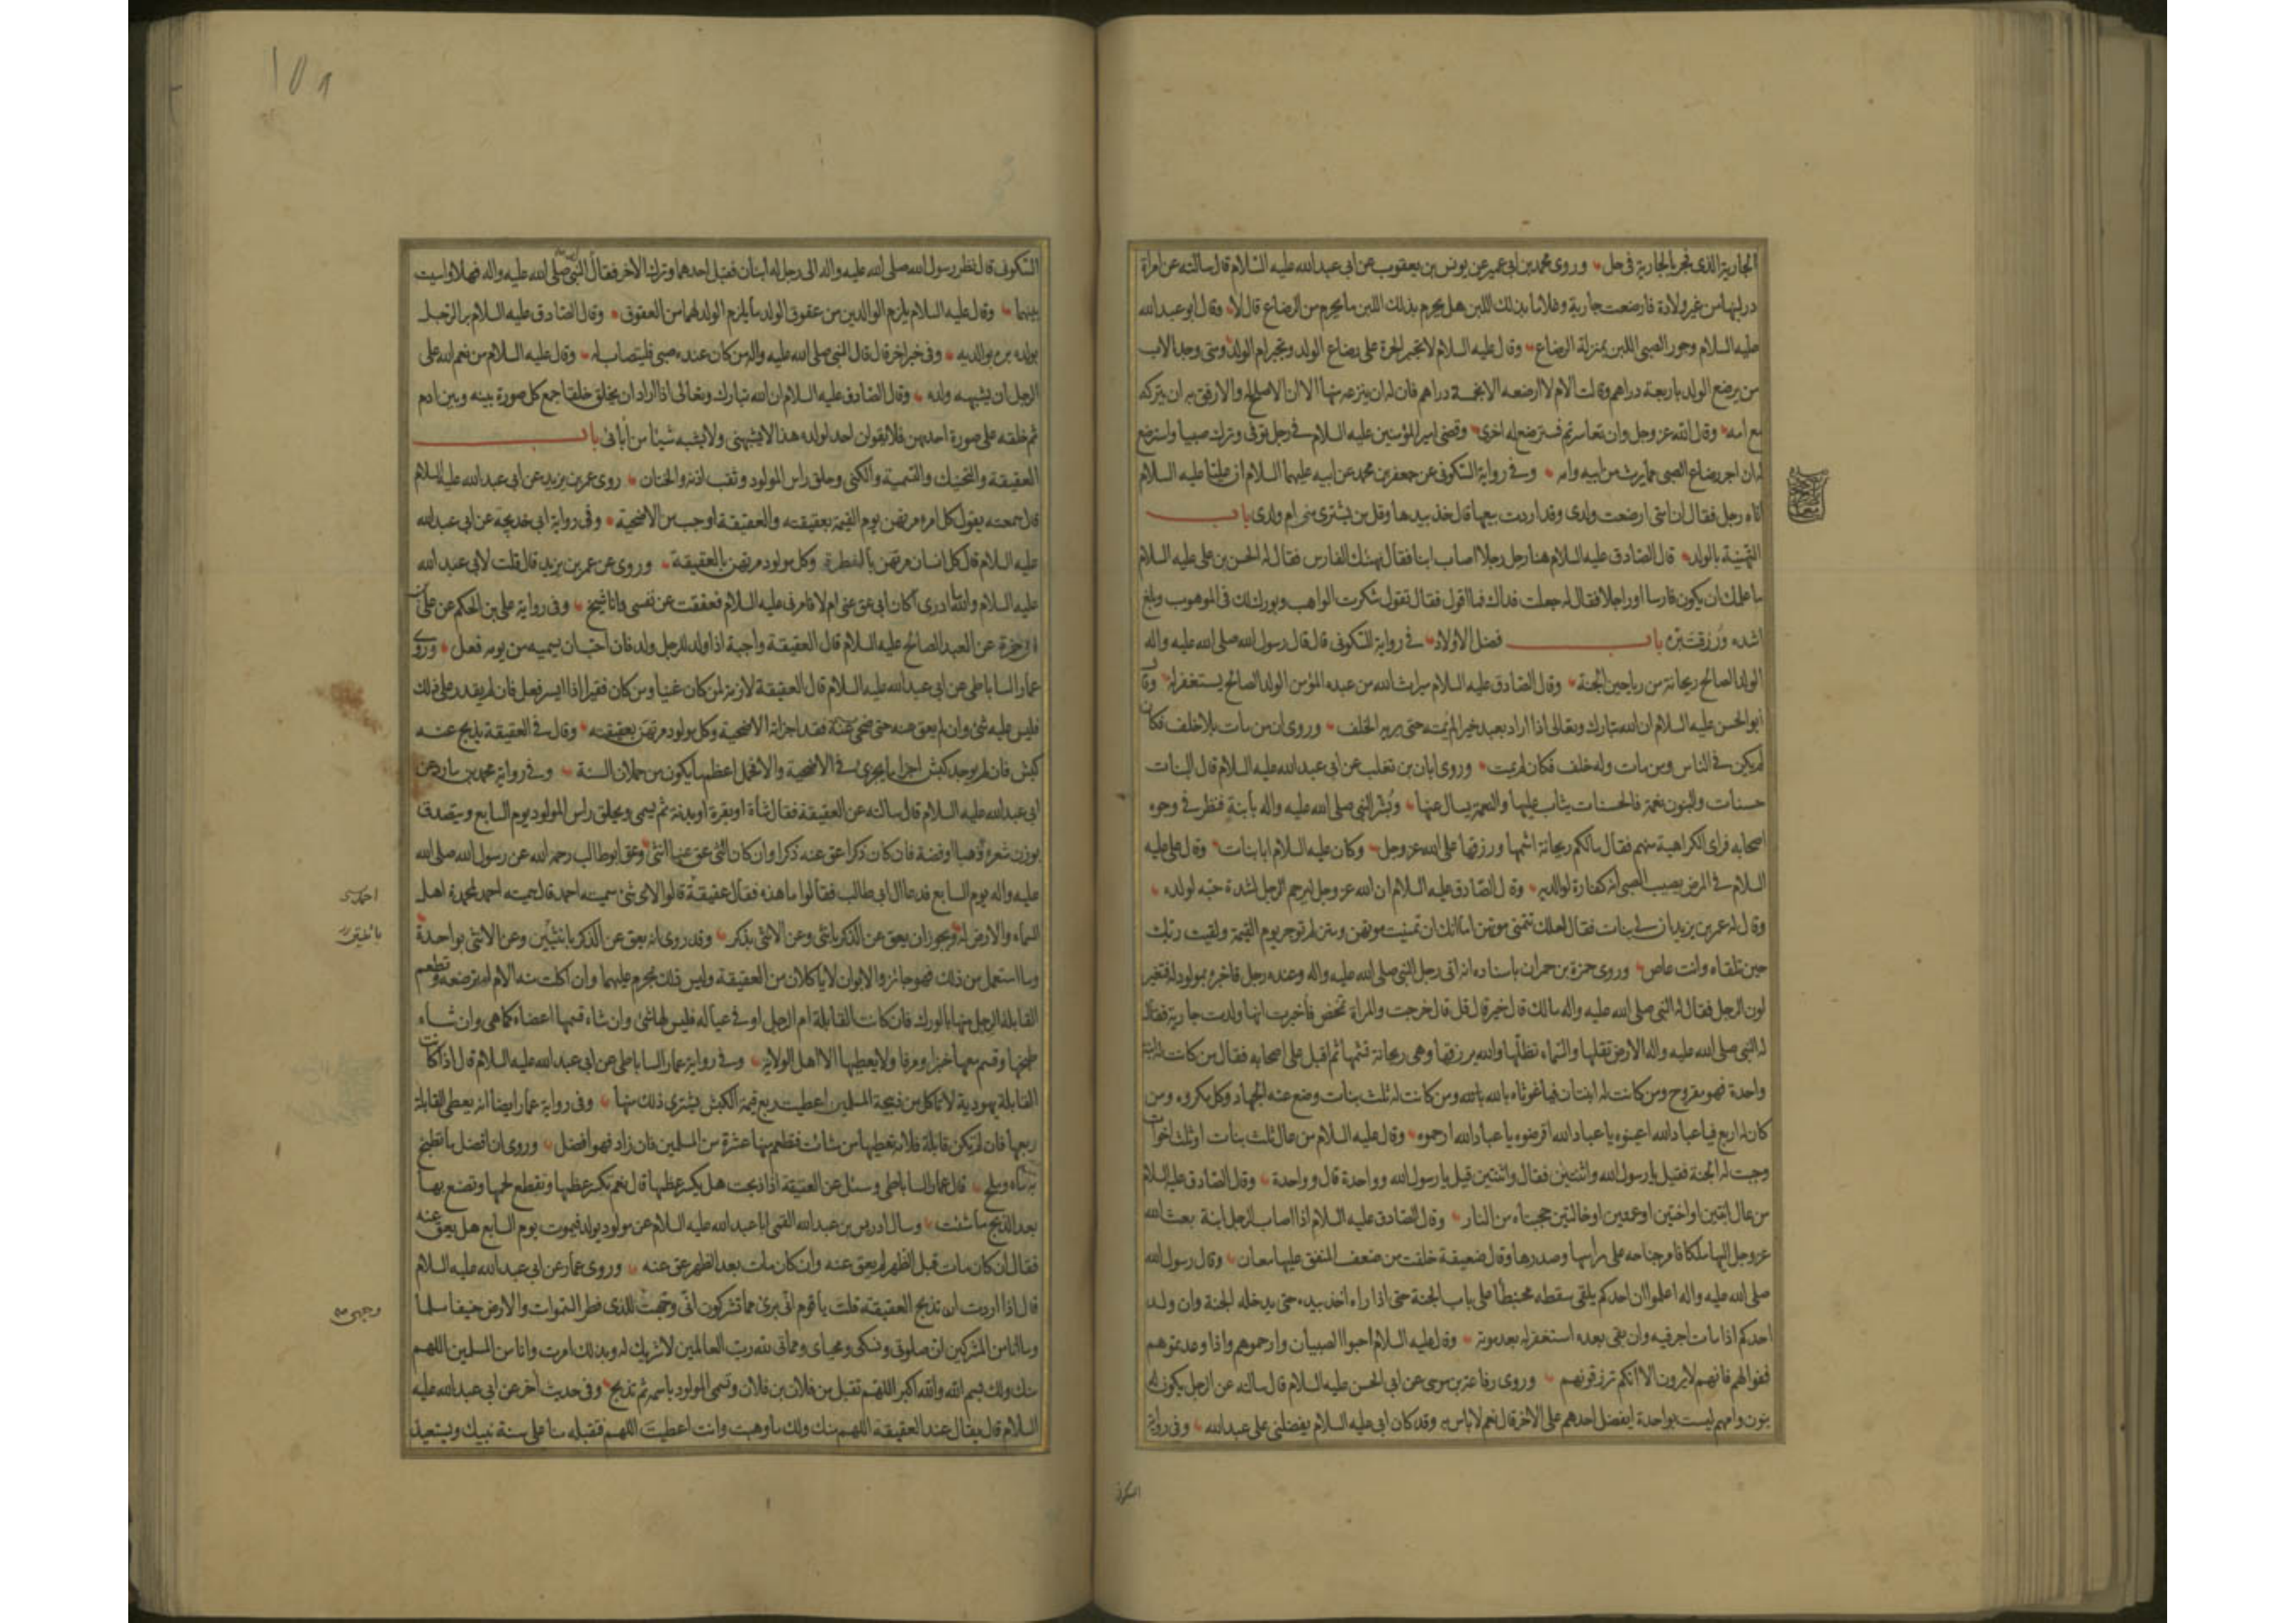 الجارية الذى فجر بالجارية فى حل وروى محمد بن ابى عمير عن يونس بن يعقوب عن ابى عبد الله عليه السلام قال سالته عن امراة
در لبنها من غير ولادة فارضعت جارية وغلاما بذلك اللبن هل يحرم بذلك اللبن ما يحرم من الرضاع قال لا وقال ابو عبد الله
عليه السلام وجور الصبى اللبن بمنزلة الرضاع وقال عليه السلام لا تجبر الحرة على رضاع الولد وتجبر ام الولد ومتى وجد الاب
من يرضع الولد باربعة دراهم وقالت الام لا ارضعه الا بخمسة دراهم فان له ان ينزعه منها الا ان الاصلح له والارفق به ان يتركه
مع امه وقال الله عز وجل وان تعاسرتم فسترضع له اخرى وقضى امير المؤمنين عليه السلام فى رجل توفى وترك صبيا واسترضع
له ان اجر رضاع الصبى مما يرث من ابيه وامه وفى رواية السكونى عن جعفر بن محمد عن ابيه عليهما السلام ان عليا عليه السلام
اتاه رجل فقال ان امتى ارضعت ولدى وقد اردت بيعها قال خذ بيدها وقل من يشترى منى ام ولدى باب
التهنية بالولد قال الصادق عليه السلام هنا رجل رجلا اصاب ابنا فقال يهنئك الفارس فقال له الحسن بن على عليه السلام
ما علمك ان يكون فارسا او راجلا فقال له جعلت فداك فما اقول فقال تقول شكرت الواهب وبورك لك فى الموهوب وبلغ
اشده ورزقت بره باب فضل الاولاد فى رواية السكونى قال قال رسول الله صلى الله عليه واله
الولد الصالح ريحانة من رياحين الجنة وقال الصادق عليه السلام ميراث الله من عبده المؤمن الولد الصالح يستغفر له وقال
ابو الحسن عليه السلام ان الله تبارك وتعالى اذا اراد بعبد خيرا لم يمته حتى يريه الخلف وروى ان من مات بلا خلف فكان
لم يكن فى الناس ومن مات وله خلف فكان لم يمت وروى ابان بن تغلب عن ابى عبد الله عليه السلام قال البنات
حسنات والبنون نعمة فالحسنات يثاب عليها والنعمة يسال عنها وبشر النبى صلى الله عليه واله بابنة فنظر فى وجوه
اصحابه فراى الكراهية منهم فقال ما لكم ريحانة اشمها ورزقها على الله عز وجل وكان عليه السلام ابا بنات وقال على عليه
السلام فى المرض يصيب الصبى انه كفارة لوالديه وقال الصادق عليه السلام ان الله عز وجل ليرحم الرجل لشدة حبه لولده
وقال له عمر بن يزيد ان لى بنات فقال لعلك تتمنى موتهن اما انك ان تمنيت موتهن ومتن لم توجر يوم القيمة ولقيت ربك
حين تلقاه وانت عاص وروى حمزة بن حمران باسناده انه اتى رجل النبى صلى الله عليه واله وعنده رجل فاخبره بمولود له فتغير
لون الرجل فقال له النبى صلى الله عليه واله ما لك قال خير قال قل قال خرجت والمراة تمخض فاخبرت انها ولدت جارية فقال
له النبى صلى الله عليه واله الارض تقلها والسماء تظلها والله يرزقها وهى ريحانة تشمها ثم اقبل على اصحابه فقال من كانت له ابنة
واحدة فهو مفروح ومن كانت له ابنتان فيا غوثاه بالله بالله ومن كانت له ثلث بنات وضع عنه الجهاد وكل مكروه ومن
كان له اربع فيا عباد الله اعينوه يا عباد الله اقرضوه يا عباد الله ارحموه وقال عليه السلام من عال ثلث بنات او ثلث اخوات
وجبت له الجنة فقيل يا رسول الله واثنتين فقال واثنتين قيل يا رسول الله وواحدة قال وواحدة وقال الصادق عليه السلام
من عال ابنتين او اختين او عمتين او خالتين حجبتاه من النار وقال الصادق عليه السلام اذا اصاب الرجل ابنة بعث الله
عز وجل اليها ملكا فامر جناحه على راسها وصدرها وقال ضعيفة خلقت من ضعف المنفق عليها معان وقال رسول الله
صلى الله عليه واله اعلموا ان احدكم يلقى سقطه محبنطأ على باب الجنة حتى اذا راه اخذ بيده حتى يدخله الجنة وان ولد
احدكم اذا مات اجر فيه وان بقى بعده استغفر له بعد موته وقال عليه السلام احبوا الصبيان وارحموهم واذا وعدتموهم
ففوا لهم فانهم لا يرون الا انكم ترزقونهم وروى رفاعة بن موسى عن ابى الحسن عليه السلام قال سالته عن الرجل يكون له
بنون وامهم ليست بواحدة ايفضل احدهم على الاخر قال نعم لا باس به وقد كان ابى عليه السلام يفضلنى على عبد الله وفى رواية
السكونى
السكونى قال نظر رسول الله صلى الله عليه واله الى رجل له ابنان فقبل احدهما وترك الاخر فقال النبى صلى الله عليه واله فهلا واسيت
بينهما وقال عليه السلام يلزم الوالدين من عقوق الولد ما يلزم الولد لهما من العقوق وقال الصادق عليه السلام بر الرجل
بولده بره بوالديه وفى خبر اخر قال قال النبى صلى الله عليه واله من كان عنده صبى فليتصاب له وقال عليه السلام من نعم الله على
الرجل ان يشبهه ولده وقال الصادق عليه السلام ان الله تبارك وتعالى اذا اراد ان يخلق خلقا جمع كل صورة بينه وبين ادم
ثم خلقه على صورة احدهن فلا يقولن احد لولده هذا لا يشبهنى ولا يشبه شيئا من ابائى باب
العقيقة والتحنيك والتسمية والكنى وحلق راس المولود وثقب اذنه والختان روى عمر بن يزيد عن ابى عبد الله عليه السلام
قال سمعته يقول كل امرء مرتهن يوم القيمة بعقيقته والعقيقة اوجب من الاضحية وفى رواية ابى خديجة عن ابى عبد الله
عليه السلام قال كل انسان مرتهن بالفطرة وكل مولود مرتهن بالعقيقة وروى عن عمر بن يزيد قال قلت لابى عبد الله
عليه السلام والله ما ادرى اكان ابى عق عنى ام لا فامرنى عليه السلام فعققت عن نفسى وانا شيخ وفى رواية على بن الحكم عن على بن
ابى حمزة عن العبد الصالح عليه السلام قال العقيقة واجبة اذا ولد للرجل ولد فان احب ان يسميه من يومه فعل وروى
عمار الساباطى عن ابى عبد الله عليه السلام قال العقيقة لازمة لمن كان غنيا ومن كان فقيرا اذا ايسر فعل فان لم يقدر على ذلك
فليس عليه شئ وان لم يعق عنه حتى ضحى عنه فقد اجزاته الاضحية وكل مولود مرتهن بعقيقته وقال فى العقيقة يذبح عنه
كبش فان لم يوجد كبش اجزاه ما يجزى فى الاضحية والا فحمل اعظم ما يكون من حملان السنة وفى رواية محمد بن مارد عن
ابى عبد الله عليه السلام قال سالته عن العقيقة فقال شاة او بقرة او بدنة ثم يسمى ويحلق راس المولود يوم السابع ويتصدق
بوزن شعره ذهبا او فضة فان كان ذكرا عق عنه ذكرا وان كان انثى عق عنها انثى وعق ابو طالب رحمه الله عن رسول الله صلى الله
عليه واله يوم السابع فدعا ال ابى طالب فقالوا ما هذه فقال عقيقة قالوا لاى شئ سميته احمد قال سميته احمد لمحمدة اهل
السماء والارض له ويجوز ان يعق عن الذكر بانثى وعن الانثى بذكر وقد روى انه يعق عن الذكر بانثيين وعن الانثى بواحدة
وما استعمل من ذلك فهو جائز والابوان لا ياكلان من العقيقة وليس ذلك بمحرم عليهما وان اكلت منه الام لم ترضعه وتطعم
القابلة الرجل منها بالورك فان كانت القابلة ام الرجل او فى عياله فليس لها شئ وان شاء قسمها اعضاء كما هى وان شاء
طبخها وقسم معها خبزا ومرقا ولا يعطيها الا اهل الولاية وفى رواية عمار الساباطى عن ابى عبد الله عليه السلام قال اذا كانت
القابلة يهودية لا تاكل من ذبيحة المسلمين اعطيت ربع قيمة الكبش يشترى ذلك منها وفى رواية عمار ايضا انه يعطى القابلة
ربعها فان لم يكن قابلة فلامه تعطيها من شائت فتطعم منها عشرة من المسلمين فان زاد فهو افضل وروى ان افضل ما تطبخ
به ماء وملح قال عمار الساباطى وسئل عن العقيقة اذا ذبحت هل يكسر عظمها قال نعم تكسر عظمها وتقطع لحمها وتصنع بها
بعد الذبح ما شئت وسال ادريس بن عبد الله القمى ابا عبد الله عليه السلام عن مولود يولد فيموت يوم السابع هل يعق عنه
فقال ان كان مات قبل الظهر لم يعق عنه وان كان مات بعد الظهر عق عنه وروى عمار عن ابى عبد الله عليه السلام
قال اذا اردت ان تذبح العقيقة قلت يا قوم انى برئ مما تشركون انى وجهت للذى فطر السموات والارض حنيفا مسلما
وما انا من المشركين ان صلوتى ونسكى ومحياى ومماتى لله رب العالمين لا شريك له وبذلك امرت وانا من المسلمين اللهم
منك ولك بسم الله والله اكبر اللهم تقبل من فلان بن فلان وتسمى المولود باسمه ثم تذبح وفى حديث اخر عن ابى عبد الله عليه
السلام قال يقال عند العقيقة اللهم منك ولك ما وهبت وانت اعطيت اللهم فتقبله منا على سنة نبيك ويستعيذ